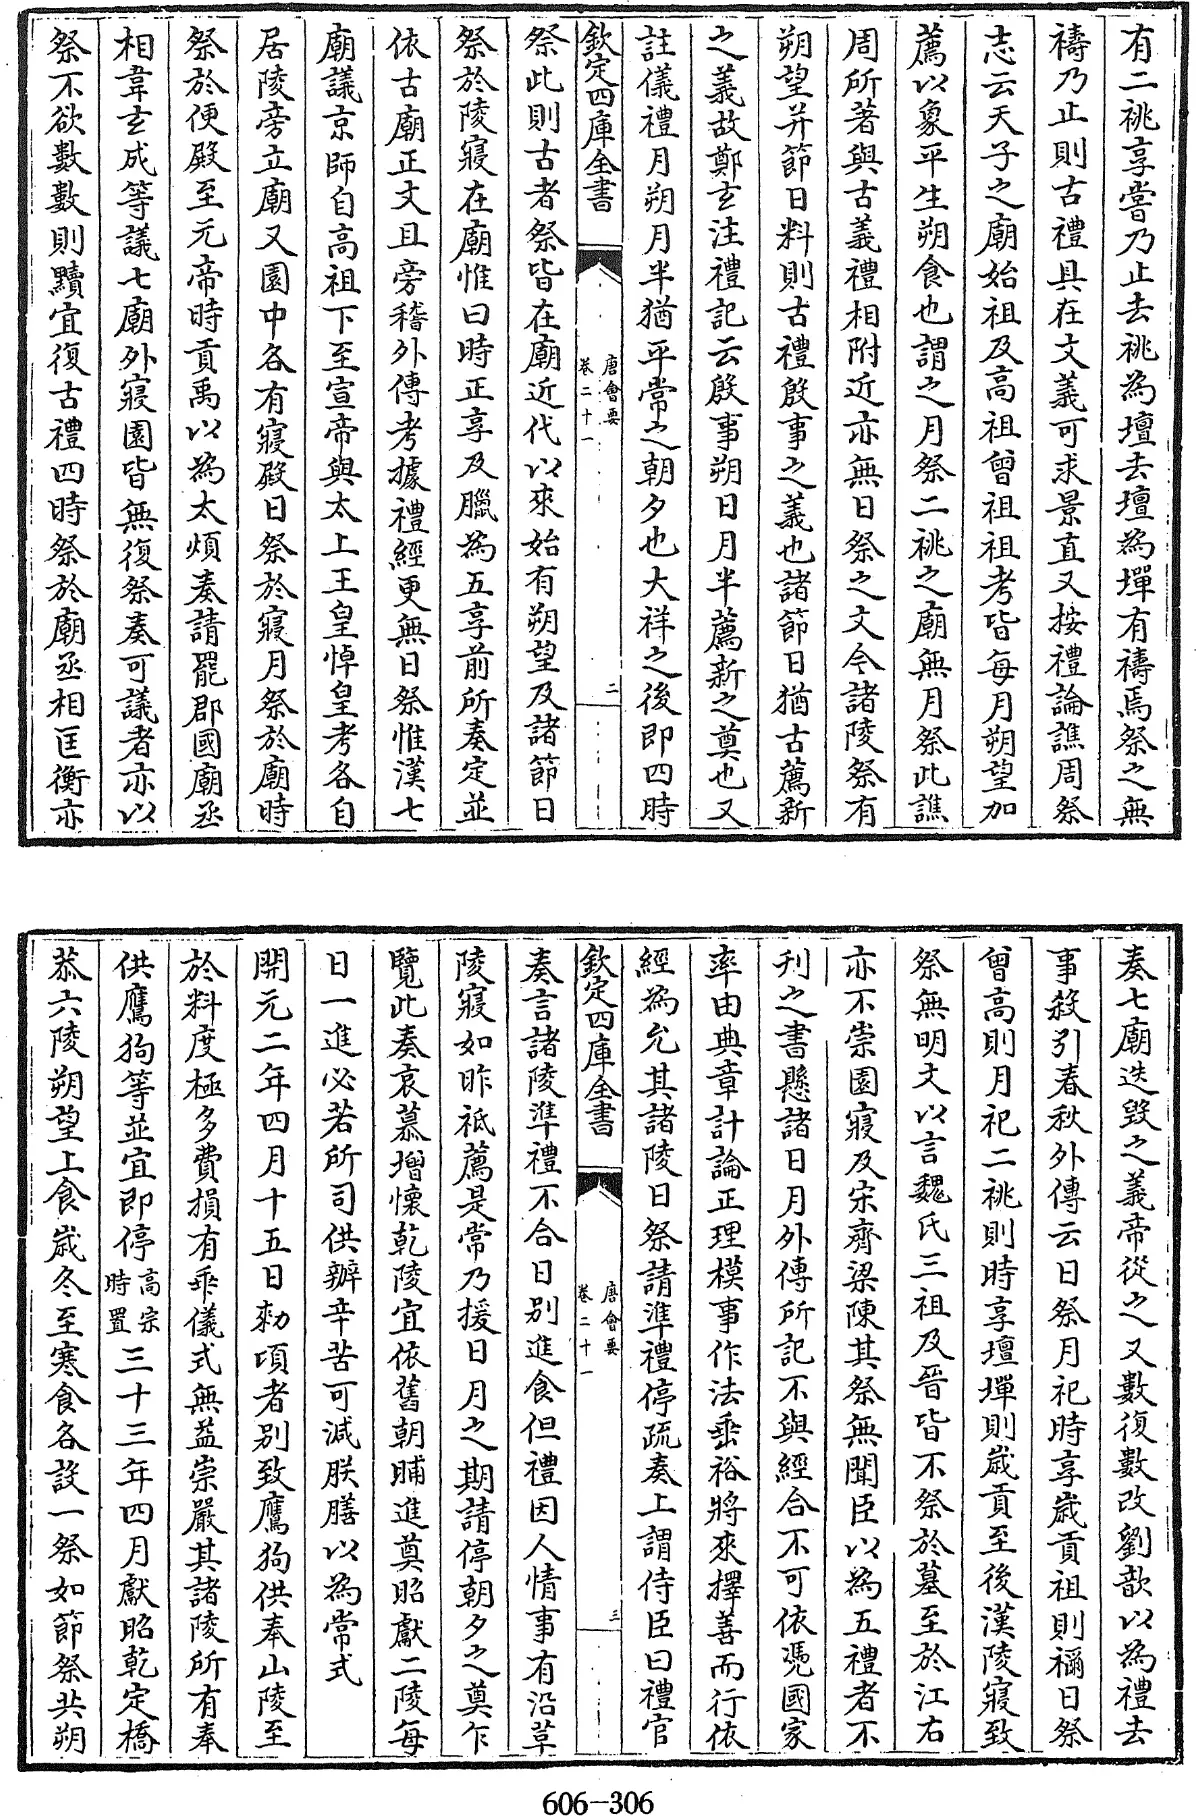 有二祧享嘗乃止去祧為壇去壇為墠有禱焉祭之無
禱乃止則古禮具在文義可求景直又按禮論譙周祭
志云天子之廟始祖及高祖曾祖祖考皆每月朔望加
薦以象平生朔食也謂之月祭二祧之廟無月祭此譙
周所著與古義禮相附近亦無日祭之文今諸陵祭有
朔望并節日料則古禮殷事之義也諸節日猶古薦新
之義故鄭玄注禮記云殷事朔日月半薦新之奠也又
註儀禮月朔月半猶平常之朝夕也大祥之後即四時
欽定四庫全書
唐會要
卷二十一
二
祭此則古者祭皆在廟近代以來始有朔望及諸節日
祭於陵寢在廟惟曰時正享及臘為五享前所奏定並
依古廟正文且旁稽外傳考據禮經更無日祭惟漢七
廟議京師自高祖下至宣帝與太上王皇悼皇考各自
居陵旁立廟又園中各有寢殿日祭於寢月祭於廟時
祭於便殿至元帝時貢禹以為太煩奏請罷郡國廟丞
相韋玄成等議七廟外寢園皆無復祭奏可議者亦以
祭不欲數數則黷宜復古禮四時祭於廟丞相匡衡亦
奏七廟迭毀之義帝從之又數復數改劉歆以為禮去
事殺引春秋外傳云日祭月祀時享歲貢祖則禰日祭
曾高則月祀二祧則時享壇墠則歲貢至後漢陵寢致
祭無明文以言魏氏三祖及晉皆不祭於墓至於江右
亦不崇園寢及宋齊梁陳其祭無聞臣以為五禮者不
刋之書懸諸日月外傳所記不與經合不可依憑國家
率由典章計論正理模事作法垂裕將來擇善而行依
經為允其諸陵日祭請準禮停疏奏上謂侍臣曰禮官
欽定四庫全書
唐會要
卷二十一
三
奏言諸陵準禮不合日別進食但禮因人情事有沿革
陵寢如昨祗薦是常乃援日月之期請停朝夕之奠乍
覽此奏哀慕增懷乾陵宜依舊朝晡進奠昭獻二陵每
日一進必若所司供辦辛苦可減朕膳以為常式
開元二年四月十五日勅頃者別致鷹狗供奉山陵至
於料度極多費損有乖儀式無益崇嚴其諸陵所有奉
供鷹狗等並宜即停高宗時置三十三年四月獻昭乾定橋
恭六陵朔望上食歲冬至寒食各設一祭如節祭共朔
606-306